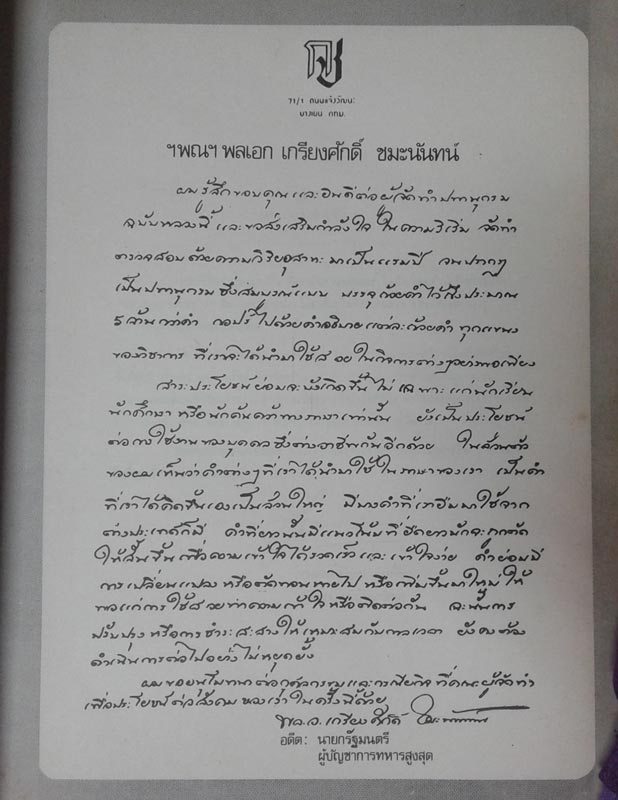 กช
71/1 ถนนแจ้งวัฒนะ
บางเขน กทม.
ฯพณฯ พลเอก เกรียงศักดิ์ ชมะนันทน์
ผมรู้สึกขอบคุณและยินดีต่อผู้จัดทำปทานุกรม
ฉบับหลวงนี้ และขอส่งเสริมกำลังใจ ในความริเริ่ม จัดทำ
ตรวจสอบด้วยความวิริยอุสาหะ มาเป็นแรมปี จนปรากฏ
เป็นปทานุกรม ซึ่งสมบูรณ์แบบ บรรจุถ้อยคำไว้ถึงประมาณ
5 ล้านกว่าคำ กอปร์ไปด้วยคำอธิบายแต่ละถ้อยคำ ทุกแขนง
ของวิชาการ ที่เราจะได้นำมาใช้สอยในกิจการต่างๆอย่างพอเพียง
สาระประโยชน์ย่อมจะบังเกิดขึ้น ไม่เฉพาะแก่นักเรียน
นักศึกษา หรือนักค้นคว้าทางภาษาเท่านั้น ยังเป็นประโยชน์
ต่อการใช้งานของบุคคลซึ่งต่างอาชีพกันอีกด้วย ในส่วนตัว
ของผมเห็นว่าคำต่างๆที่เราได้นำมาใช้ในภาษาของเรา เป็นคำ
ที่เราได้คิดขึ้นเองเป็นส่วนใหญ่ มีบางคำที่เรายืมมาใช้จาก
ต่างประเทศก็มี คำที่ยาวนั้นมีแนวโน้มที่ยืดยาวนักจะถูกตัด
ให้สั้นขึ้นเพื่อความเข้าใจได้รวดเร็วและเข้าใจง่าย คำย่อมมี
การเปลี่ยนแปลง หรือตัดทอนหายไป หรือเพิ่มขึ้นมาใหม่ ให้
พอแก่การใช้สอยทำความเข้าใจหรือติดต่อกัน ฉะนั้นการ
ปรับปรุง หรือการชำระสะสางให้เหมาะสมกับกาลเวลา ยังคงต้อง
ดำเนินการต่อไปอย่างไม่หยุดยั้ง
ผมขออนุโมทนาต่อกุศลกรรมและกรณียกิจที่คณะผู้จัดทำ
เพื่อประโยชน์ต่อสังคมของเราในครั้งนี้ด้วย
พล.อ. เกรียงศักดิ์ ชมะนันทน์
อดีต: นายกรัฐมนตรี
ผู้บัญชาการทหารสูงสุด